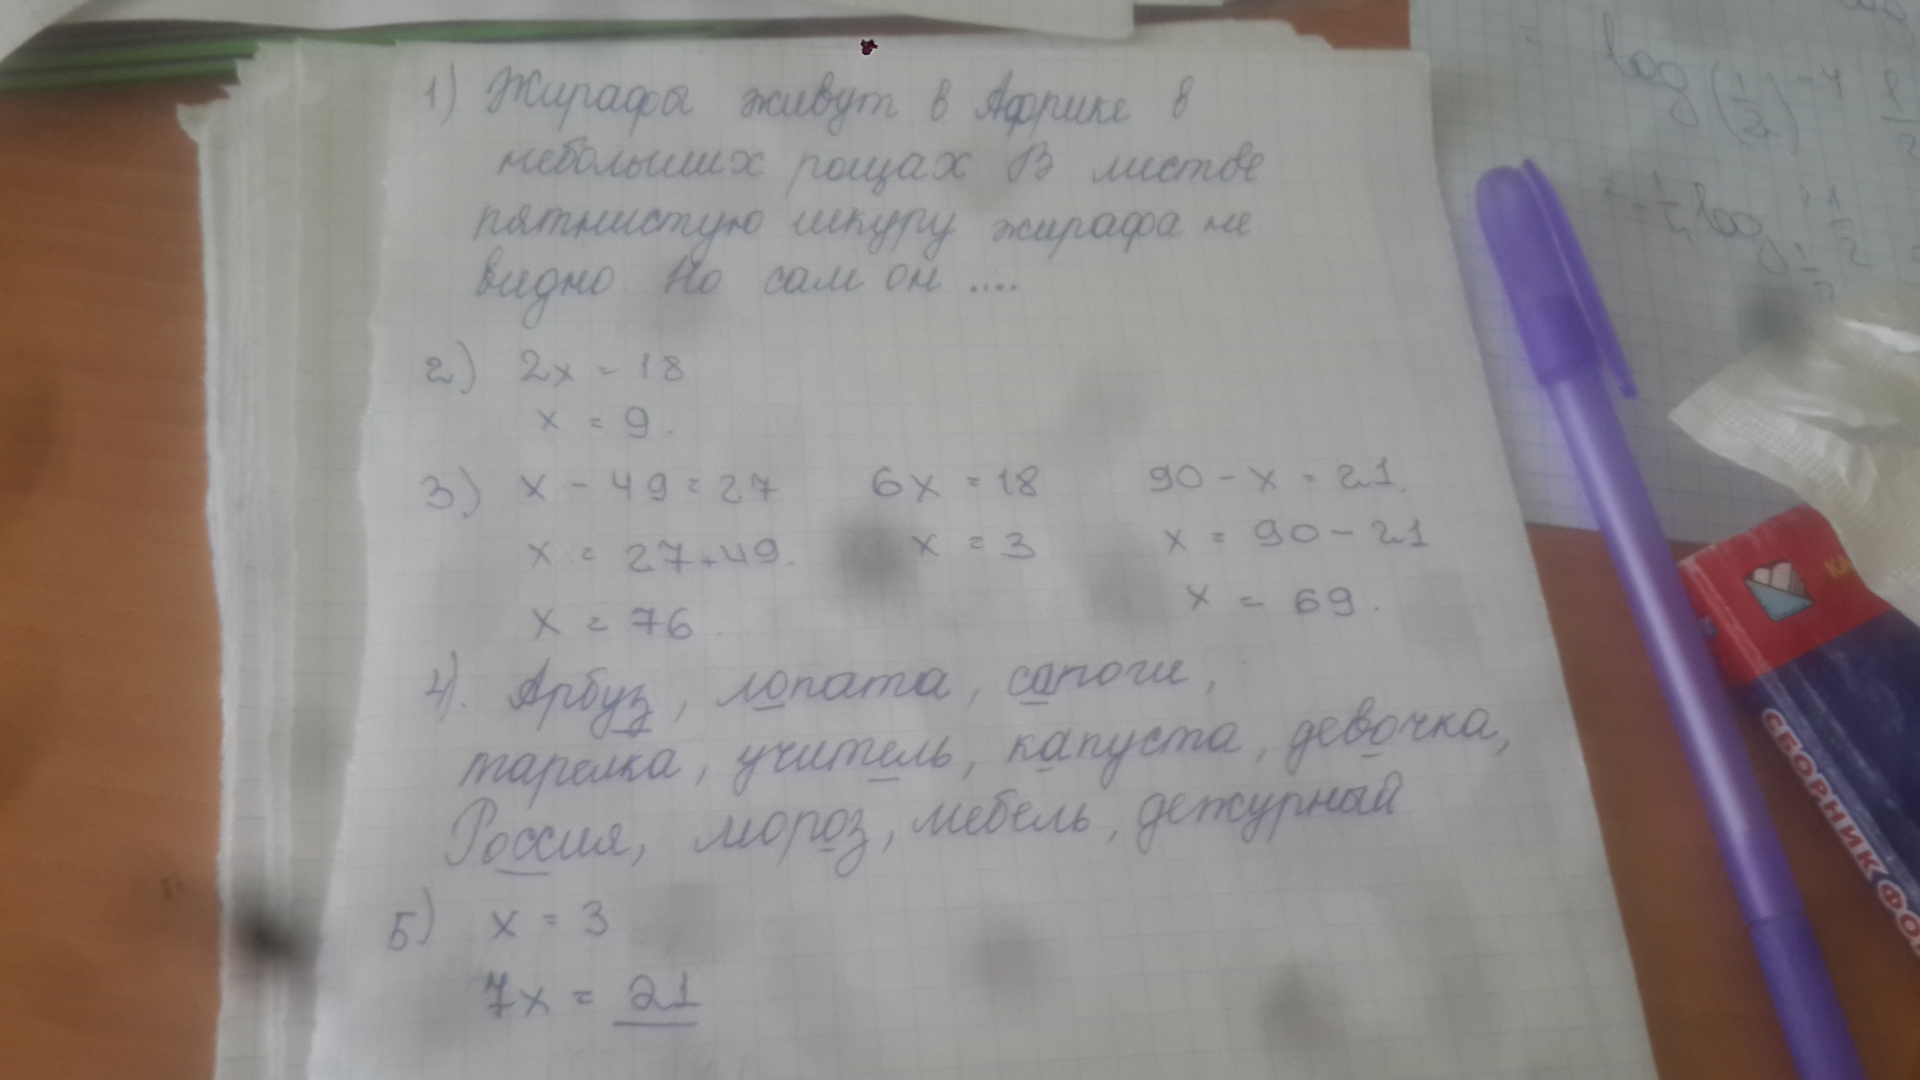 1) Жирафы живут в Африке в
небольших рощах В листве
пятнистую шкуру жирафа не
видно Но сам он ....
2) 2x = 18
x = 9.
3) x - 49 = 27 6x = 18 90 - x = 21.
x = 27+49. x = 3 x = 90 - 21
x = 76. x = 69.
4). Арбуз, лопата, сапоги,
тарелка, учитель, капуста, девочка,
Россия, мороз, мебель, дежурный
5) x = 3
7x = 21
log (1/2) -4
СБОРНИК ФО